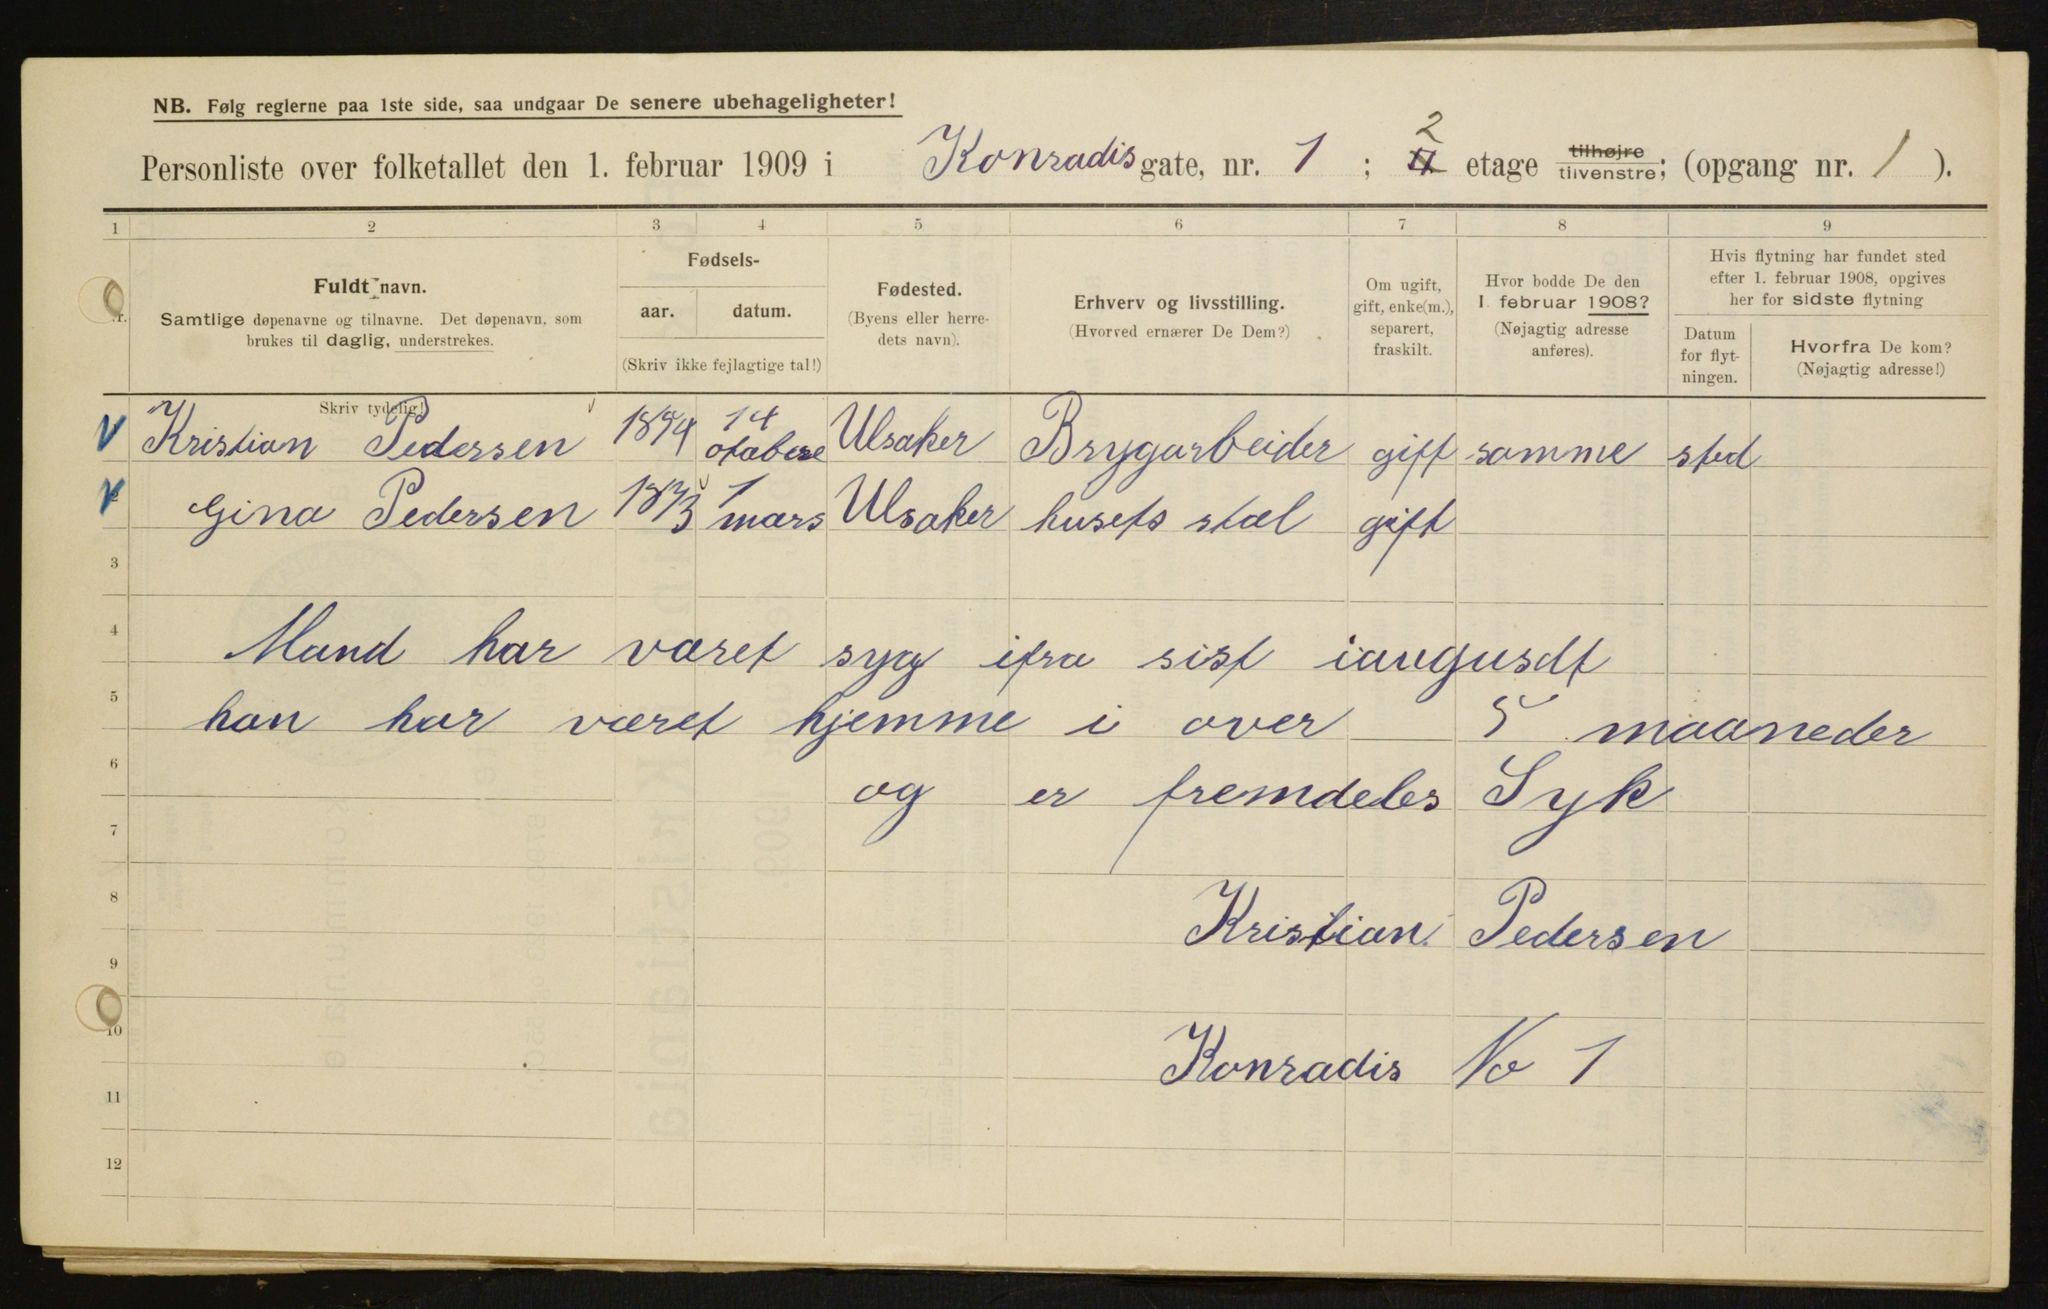 NB. Følg reglerne paa 1ste side, saa undgaar De senere ubehageligheter!
Personliste over folketallet den 1. februar 1909 i Konradis gate, nr. 1 ; 2 etage tilhøjre tilvenstre; (opgang nr. 1 ).
1 2 3 4 5 6 7 8 9
Fuldt navn.
Samtlige døpenavne og tilnavne. Det døpenavn, som
brukes til daglig, understrekes.
Skriv tydelig!
Fødsels-
aar. datum.
(Skriv ikke fejlagtige tal!)
Fødested.
(Byens eller herre-
dets navn).
Erhverv og livsstilling.
(Hvorved ernærer De Dem?)
Om ugift,
gift, enke(m.),
separert,
fraskilt.
Hvor bodde De den
1. februar 1908?
(Nøjagtig adresse
anføres).
Hvis flytning har fundet sted
efter 1. februar 1908, opgives
her for sidste flytning
Datum
for flyt-
ningen.
Hvorfra De kom?
(Nøjagtig adresse!)
Kristian Pedersen 1874 14 otobere Ulsaker Brygarbeider gift samme sted
Gina Pedersen 1873 1 mars Ulsaker husets stæl gift
3
4 Mand har været syg ifra sist iaugusdt
5 han har været hjemme i over 5 maaneder
6 og er fremdeles Syk
7
8 Kristian Pedersen
9
10 Konradis No 1
11
12